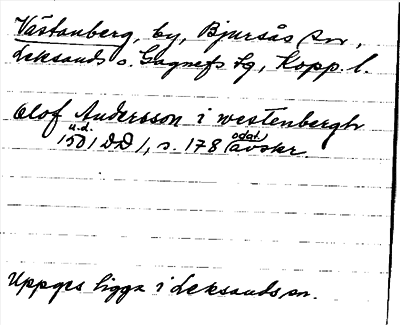 Västanberg, by, Bjursås sn,
Leksands o. Gagnefs tg, Kopp. l.
Olof Andersson i westenbergh
u.d. odat.
1501 DD 1, s. 178 avskr.
Uppges ligga i Leksands sn.